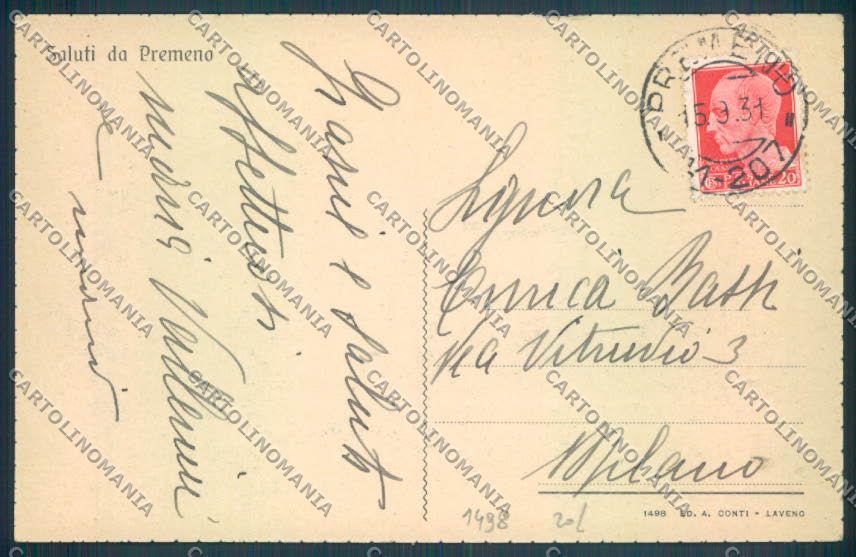 Saluti da Premeno
Bacioni e saluti
affettuosi
Maria
PREMENO
15.9.31
CENT. 20
Signora
Enrica Bassi
Via Vitruvio 3
Milano
1498
20/
1498 ED. A. CONTI - LAVENO
CARTOLINOMANIA